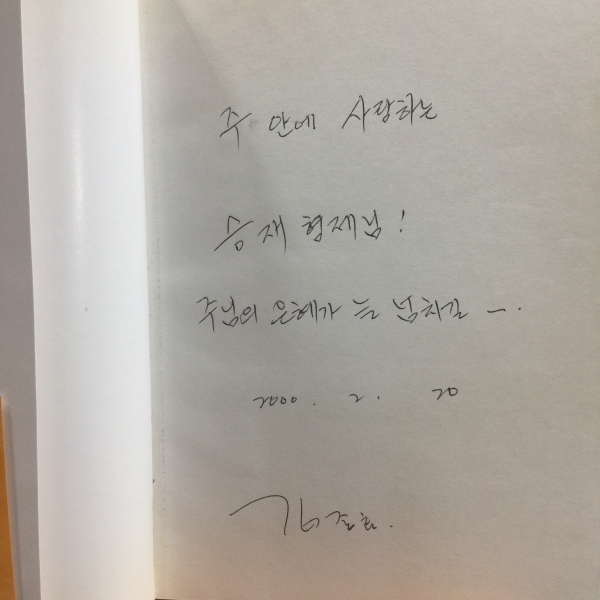 주 안에 사랑하는
승재 형제님!
주님의 은혜가 늘 넘치길 -.
2000. 2. 20